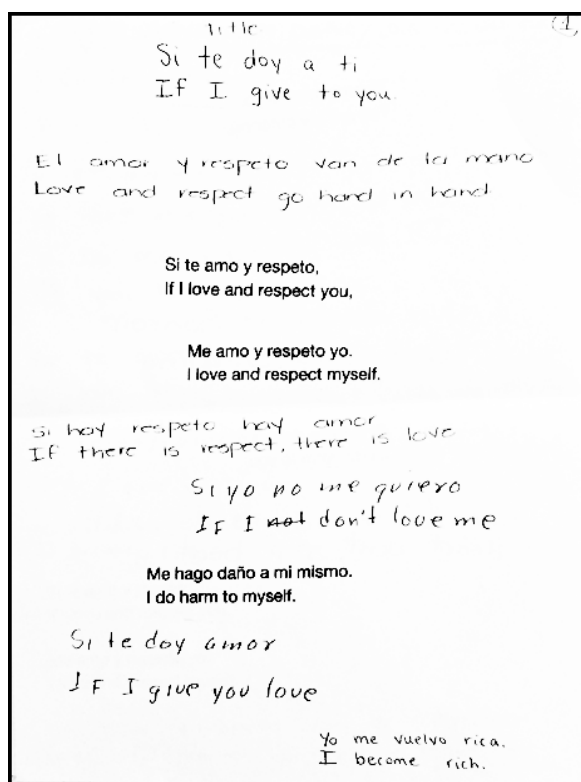 Title
Si te doy a ti
If I give to you.
El amor y respeto van de la mano
Love and respect go hand in hand
Si te amo y respeto,
If I love and respect you,
Me amo y respeto yo.
I love and respect myself.
Si hay respeto hay amor
If there is respect, there is love
Si yo no me quiero
If I not don't love me
Me hago daño a mi mismo.
I do harm to myself.
Si te doy amor
If I give you love
Yo me vuelvo rica.
I become rich.